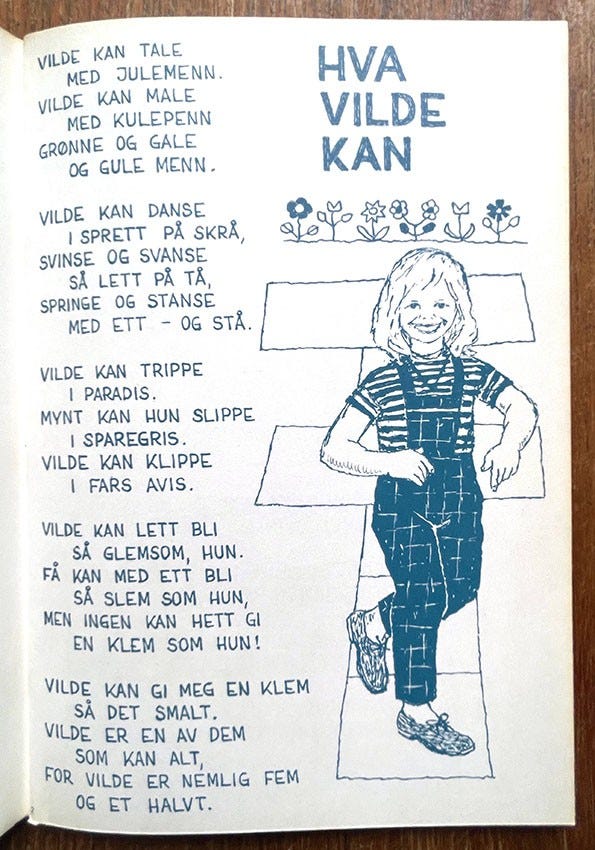 HVA
VILDE
KAN
VILDE KAN TALE
MED JULEMENN.
VILDE KAN MALE
MED KULEPENN
GRØNNE OG GALE
OG GULE MENN.
VILDE KAN DANSE
I SPRETT PÅ SKRÅ,
SVINSE OG SVANSE
SÅ LETT PÅ TÅ,
SPRINGE OG STANSE
MED ETT – OG STÅ.
VILDE KAN TRIPPE
I PARADIS.
MYNT KAN HUN SLIPPE
I SPAREGRIS.
VILDE KAN KLIPPE
I FARS AVIS.
VILDE KAN LETT BLI
SÅ GLEMSOM, HUN.
FÅ KAN MED ETT BLI
SÅ SLEM SOM HUN,
MEN INGEN KAN HETT GI
EN KLEM SOM HUN!
VILDE KAN GI MEG EN KLEM
SÅ DET SMALT.
VILDE ER EN AV DEM
SOM KAN ALT,
FOR VILDE ER NEMLIG FEM
OG ET HALVT.